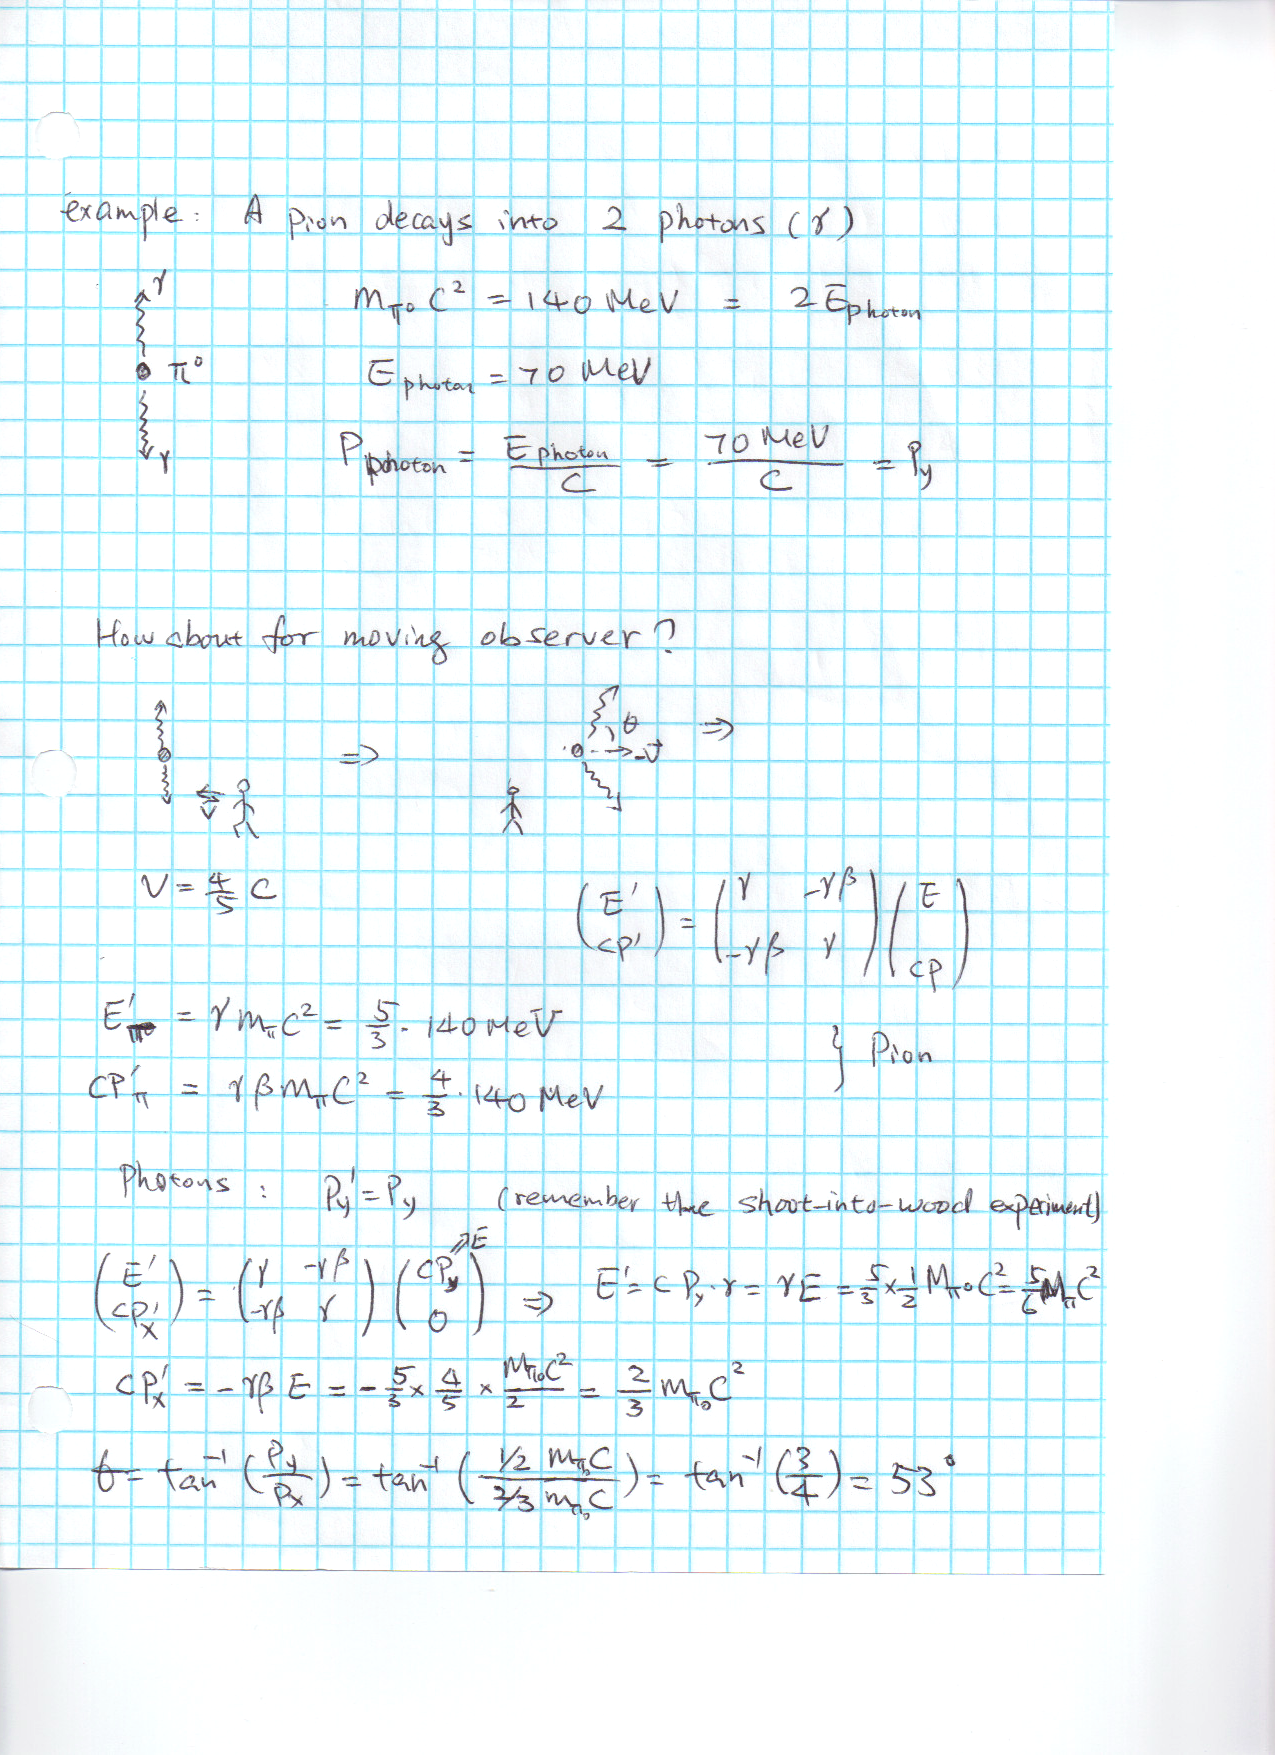 example: A pion decays into 2 photons (γ)
γ
m_π⁰ C² = 140 MeV = 2 E_photon
π⁰
E_photon = 70 MeV
γ
P_photon = E_photon / C = 70 MeV / C = P_y
How about for moving observer?
θ
⇒ ⇒
-v⃗
v⃗
V = 4/5 C
(E' cP') = (γ -γβ -γβ γ) (E cP)
E'_π⁰ = γ m_π C² = 5/3 · 140 MeV
} Pion
CP'_π = γβ m_π C² = 4/3 · 140 MeV
Photons: P_y' = P_y (remember the shoot-into-wood experiment)
(E' cP_x') = (γ -γβ -γβ γ) (cP_y 0) ⇗ E ⇒ E' = c P_y · γ = γE = 5/3 × 1/2 M_π⁰ C² = 5/6 M_π C²
cP_x' = - γβ E = - 5/3 × 4/5 × M_π⁰C² / 2 = 2/3 m_π⁰ C²
θ = tan⁻¹ (P_y / P_x) = tan⁻¹ (1/2 m_π⁰ C / 2/3 m_π⁰ C) = tan⁻¹ (3/4) = 53°